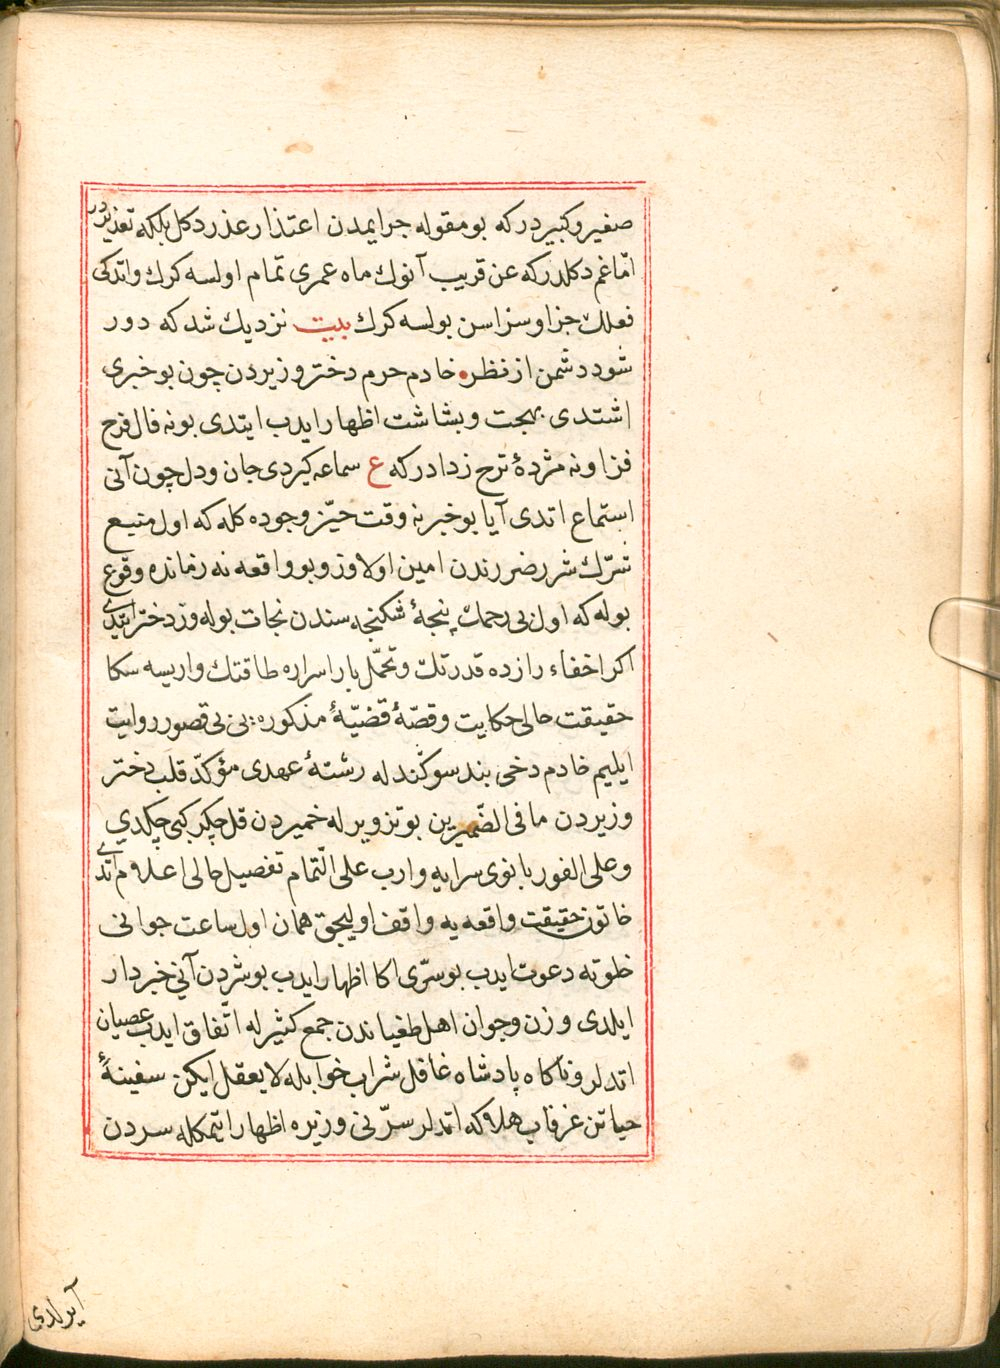 صغیر و کبیردر که بو مقوله جرایمدن اعتذار عذر دکل بلکه تعذیردر
امّا غم دکلدر که عن قریب آنوك ماه عمری تمام اولسه کرك و اتدکی
فعلك جزا و سزاسن بولسه کرك بیت نزدیك شد که دور
شود دشمن از نظر خادم حرم دختر وزیردن چون بو خبری
اشتدی بهجت و بشاشت اظهار ایدب ایتدی بو نه فال فرح
فزا و نه مژدهٔ ترح زدادر که ع سماعه کیردی جان و دل چون آنی
استماع اتدی آیا بو خبر نه وقت حیّز وجوده کله که اول منبع
شرّك شرر ضررندن امین اولاوز و بو واقعه نه زمانده وقوع
بوله که اول بی رحمك پنجهٔ شکنجه سندن نجات بوله وز دختر ایتدی
اکر اخفاء رازده قدرتك و تحمّل بار اسراره طاقتك واریسه سکا
حقیقت حالی حکایت و قصّهٔ قضیّهٔ مذکوره یی بی قصور روایت
ایلیم خادم دخی بند سوکند له رشتهٔ عهدی مؤکدّ قلب دختر
وزیردن ما فی الضّمیرین بو تزویر له خمیردن قل چکر کبی چکلدی
و علی الفور بانوی سرایه وارب علی التّمام تفصیل حالی اعلام اتدی
خاتون حقیقت واقعه یه واقف اولیجق همان اول ساعت جوانی
خلوته دعوت ایدب بو سرّی اکا اظهار ایدب بو شردن آنی خبردار
ایلدی و زن و جوان اهل طغیاندن جمع کثیر له اتّفاق ایدب عصیان
اتدلر و ناکاه پادشاه غافل شراب خوابله لا یعقل ایکن سفینهٔ
حیاتن غرقاب هلاکه اتدلر سرّنی وزیره اظهار اتمکله سردن
آیرلدی